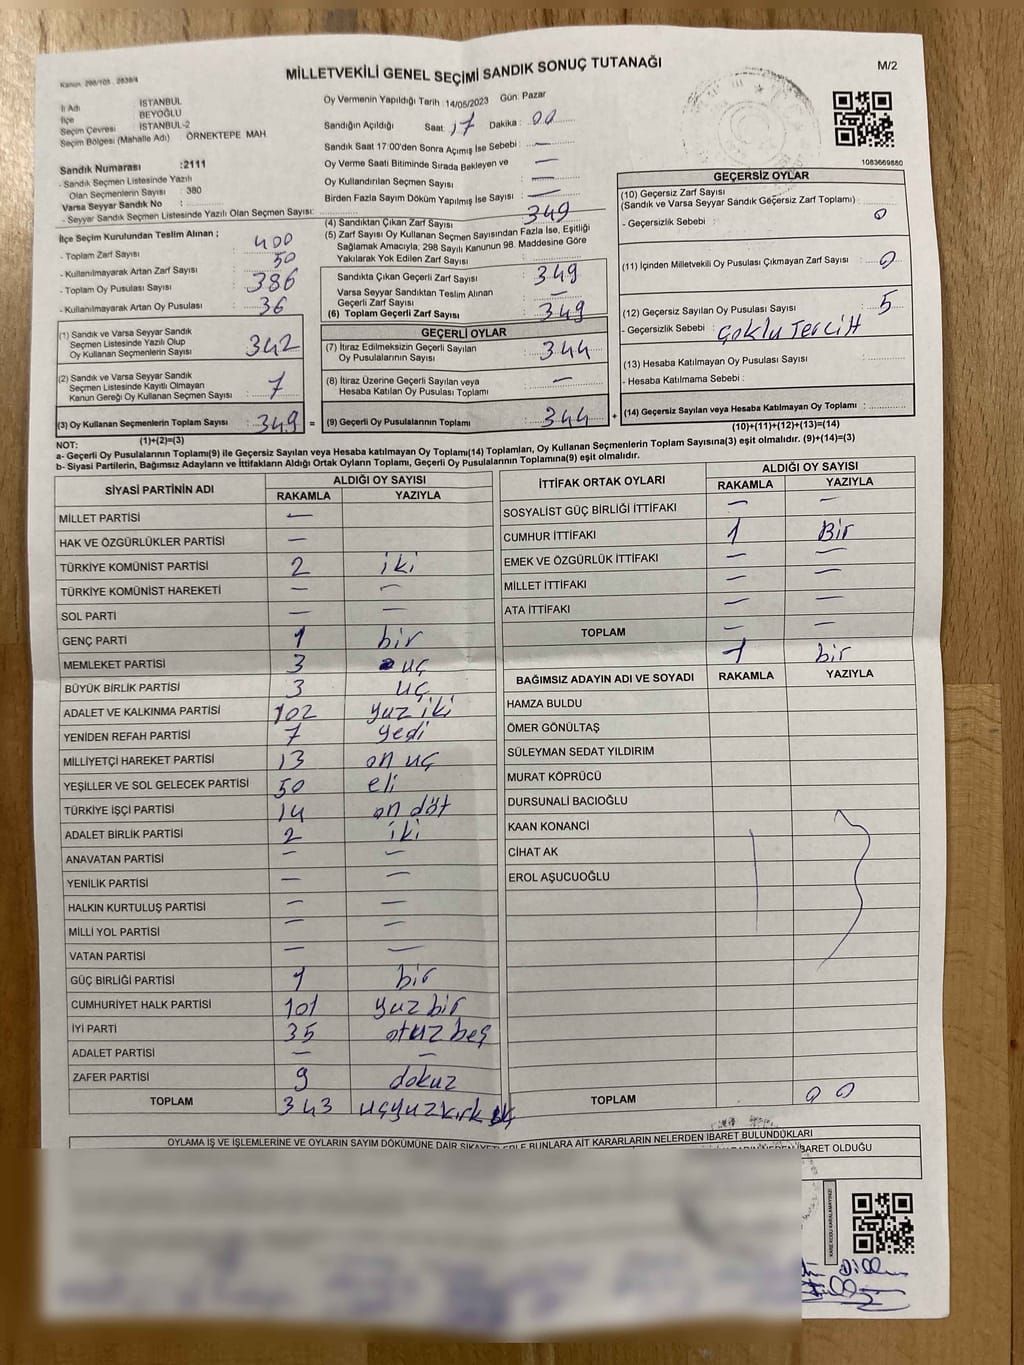 Kanun: 298/105 . 2839/4
MİLLETVEKİLİ GENEL SEÇİMİ SANDIK SONUÇ TUTANAĞI
M/2
İl Adı İSTANBUL
İlçe BEYOĞLU
Seçim Çevresi İSTANBUL-2
Seçim Bölgesi (Mahalle Adı) ÖRNEKTEPE MAH
Sandık Numarası :2111
- Sandık Seçmen Listesinde Yazılı
Olan Seçmenlerin Sayısı : 380
Varsa Seyyar Sandık No :
- Seyyar Sandık Seçmen Listesinde Yazılı Olan Seçmen Sayısı:
İlçe Seçim Kurulundan Teslim Alınan ;
- Toplam Zarf Sayısı : 400
- Kullanılmayarak Artan Zarf Sayısı : 50
- Toplam Oy Pusulası Sayısı : 386
- Kullanılmayarak Artan Oy Pusulası : 36
(1) Sandık ve Varsa Seyyar Sandık
Seçmen Listesinde Yazılı Olup
Oy Kullanan Seçmenlerin Sayısı 342
(2) Sandık ve Varsa Seyyar Sandık
Seçmen Listesinde Kayıtlı Olmayan
Kanun Gereği Oy Kullanan Seçmen Sayısı 7
(3) Oy Kullanan Seçmenlerin Toplam Sayısı 349 =
(1)+(2)=(3)
Oy Vermenin Yapıldığı Tarih 14/05/2023 Gün: Pazar
Sandığın Açıldığı Saat: 17 Dakika : 00
Sandık Saat 17:00'den Sonra Açımış İse Sebebi : —
Oy Verme Saati Bitiminde Sırada Bekleyen ve
Oy Kullandırılan Seçmen Sayısı : —
Birden Fazla Sayım Döküm Yapılmış İse Sayısı : —
(4) Sandıktan Çıkan Zarf Sayısı 349
(5) Zarf Sayısı Oy Kullanan Seçmen Sayısından Fazla İse, Eşitliği
Sağlamak Amacıyla, 298 Sayılı Kanunun 98. Maddesine Göre
Yakılarak Yok Edilen Zarf Sayısı :
Sandıkta Çıkan Geçerli Zarf Sayısı 349
Varsa Seyyar Sandıktan Teslim Alınan
Geçerli Zarf Sayısı —
(6) Toplam Geçerli Zarf Sayısı 349
GEÇERLİ OYLAR
(7) İtiraz Edilmeksizin Geçerli Sayılan
Oy Pusulalarının Sayısı 344
(8) İtiraz Üzerine Geçerli Sayılan veya
Hesaba Katılan Oy Pusulası Toplamı —
(9) Geçerli Oy Pusulalarının Toplamı 344 +
1083669880
GEÇERSİZ OYLAR
(10) Geçersiz Zarf Sayısı
(Sandık ve Varsa Seyyar Sandık Geçersiz Zarf Toplamı) : 0
- Geçersizlik Sebebi :
(11) İçinden Milletvekili Oy Pusulası Çıkmayan Zarf Sayısı 0
(12) Geçersiz Sayılan Oy Pusulası Sayısı 5
- Geçersizlik Sebebi : Çoklu Tercih
(13) Hesaba Katılmayan Oy Pusulası Sayısı
- Hesaba Katılmama Sebebi :
(14) Geçersiz Sayılan veya Hesaba Katılmayan Oy Toplamı :
(10)+(11)+(12)+(13)=(14)
NOT:
a- Geçerli Oy Pusulalarının Toplamı(9) ile Geçersiz Sayılan veya Hesaba katılmayan Oy Toplamı(14) Toplamları, Oy Kullanan Seçmenlerin Toplam Sayısına(3) eşit olmalıdır. (9)+(14)=(3)
b- Siyasi Partilerin, Bağımsız Adayların ve İttifakların Aldığı Ortak Oyların Toplamı, Geçerli Oy Pusulalarının Toplamına(9) eşit olmalıdır.
SİYASİ PARTİNİN ADI ALDIĞI OY SAYISI
RAKAMLA YAZIYLA
MİLLET PARTİSİ —
HAK VE ÖZGÜRLÜKLER PARTİSİ —
TÜRKİYE KOMÜNİST PARTİSİ 2 iki
TÜRKİYE KOMÜNİST HAREKETİ — —
SOL PARTİ — —
GENÇ PARTİ 1 bir
MEMLEKET PARTİSİ 3 uç
BÜYÜK BİRLİK PARTİSİ 3 uç
ADALET VE KALKINMA PARTİSİ 102 yuz iki
YENİDEN REFAH PARTİSİ 7 yedi
MİLLİYETÇİ HAREKET PARTİSİ 13 on uç
YEŞİLLER VE SOL GELECEK PARTİSİ 50 eli
TÜRKİYE İŞÇİ PARTİSİ 14 on döt
ADALET BİRLİK PARTİSİ 2 iki
ANAVATAN PARTİSİ — —
YENİLİK PARTİSİ — —
HALKIN KURTULUŞ PARTİSİ — —
MİLLİ YOL PARTİSİ — —
VATAN PARTİSİ — —
GÜÇ BİRLİĞİ PARTİSİ 1 bir
CUMHURİYET HALK PARTİSİ 101 yuz bir
İYİ PARTİ 35 otuz beş
ADALET PARTİSİ — —
ZAFER PARTİSİ 9 dokuz
TOPLAM 343 uçyuzkırk
İTTİFAK ORTAK OYLARI ALDIĞI OY SAYISI
RAKAMLA YAZIYLA
SOSYALİST GÜÇ BİRLİĞİ İTTİFAKI — —
CUMHUR İTTİFAKI 1 Bir
EMEK VE ÖZGÜRLÜK İTTİFAKI — —
MİLLET İTTİFAKI — —
ATA İTTİFAKI — —
TOPLAM — —
1 bir
BAĞIMSIZ ADAYIN ADI VE SOYADI RAKAMLA YAZIYLA
HAMZA BULDU
ÖMER GÖNÜLTAŞ
SÜLEYMAN SEDAT YILDIRIM
MURAT KÖPRÜCÜ
DURSUNALİ BACIOĞLU
KAAN KONANCİ
CİHAT AK
EROL AŞUCUOĞLU
TOPLAM 00
OYLAMA İŞ VE İŞLEMLERİNE VE OYLARIN SAYIM DÖKÜMÜNE DAİR ŞİKAYETLERLE BUNLARA AİT KARARLARIN NELERDEN İBARET BULUNDUKLARI
İBARET OLDUĞU
KARE KODU KARALAMAYINIZ!